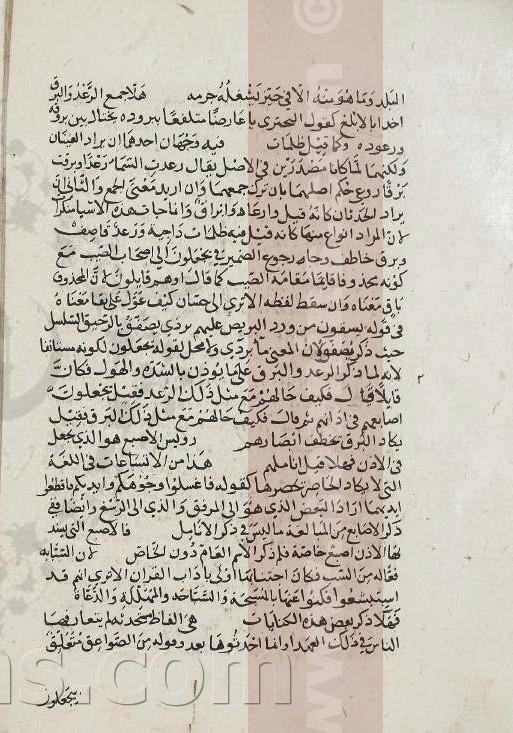 البلد وما هو منه الا في حيز يشغله جرمه هلا جمع الرعد والبرق
اخذا بالابلغ كقول البحتري يا عارضا متلفعا ببروده يختال بين بروقه
ورعوده وكما قيل ظلمات فيه وجهان احدهما ان يراد العينان
ولكنهما لما كانا مصدرين في الاصل يقال رعدت السماء رعدا وبرقت
برقا روعي حكم اصلهما بان ترك جمعهما وان اريد معنى الجمع والثاني ان
يراد الحدثان كانه قيل وارعاد وابراق وانما جات هذه الاشيا منكرات
لان المراد انواع منها كانه قيل فيه ظلمات داجية ورعد قاصف
وبرق خاطف وجاز رجوع الضمير في يجعلون الى اصحاب الصيب مع
كونه محذوفا قائما مقامه الصيب كما قال او هم قايلون لان المحذوف
باق معناه وان سقط لفظه الا ترى الى حسان كيف عول على بقا معناه
في قوله يسقون من ورد البريص عليهم بردى يصفق بالرحيق السلسل
حيث ذكر يصفق لان المعنى ما بردى ولا محل لقوله يجعلون لكونه مستانفا
لانه لما ذكر الرعد والبرق على ما يوذن بالشدة والهول فكان
قايلا قال فكيف حالهم مع مثل ذلك الرعد فقيل يجعلون
اصابعهم في اذانهم ثم قال فكيف حالهم مع مثل ذلك البرق فقيل
يكاد البرق يخطف ابصارهم روس الاصبع هو الذي يجعل
في الاذن فهلا قيل اناملهم هذا من الاتساعات في اللغة
التي لا يكاد الحاصر يحصرها كقوله فاغسلوا وجوهكم وايديكم فاقطعوا
ايديهما اراد البعض الذي هو الى المرفق والذي الى الرسغ وايضا ففي
ذكر الاصابع من المبالغة ما ليس في ذكر الانامل فالاصبع التي يسد
بها الاذن اصبع خاصة فلم ذكر الاسم العام دون الخاص لان السبابه
فعاله من السب فكان اجتنابها اولى باداب القران الا ترى انهم قد
استبشعوها فكنوا عنها بالمسبحة والسباحة والمهللة والدعاة
فهلا ذكر بعض هذه الكنايات هي الفاظ مستحدثه لم يتعارفها
الناس في ذلك العهد وانما احدثوها بعد وقوله من الصواعق متعلق
بيجعلون